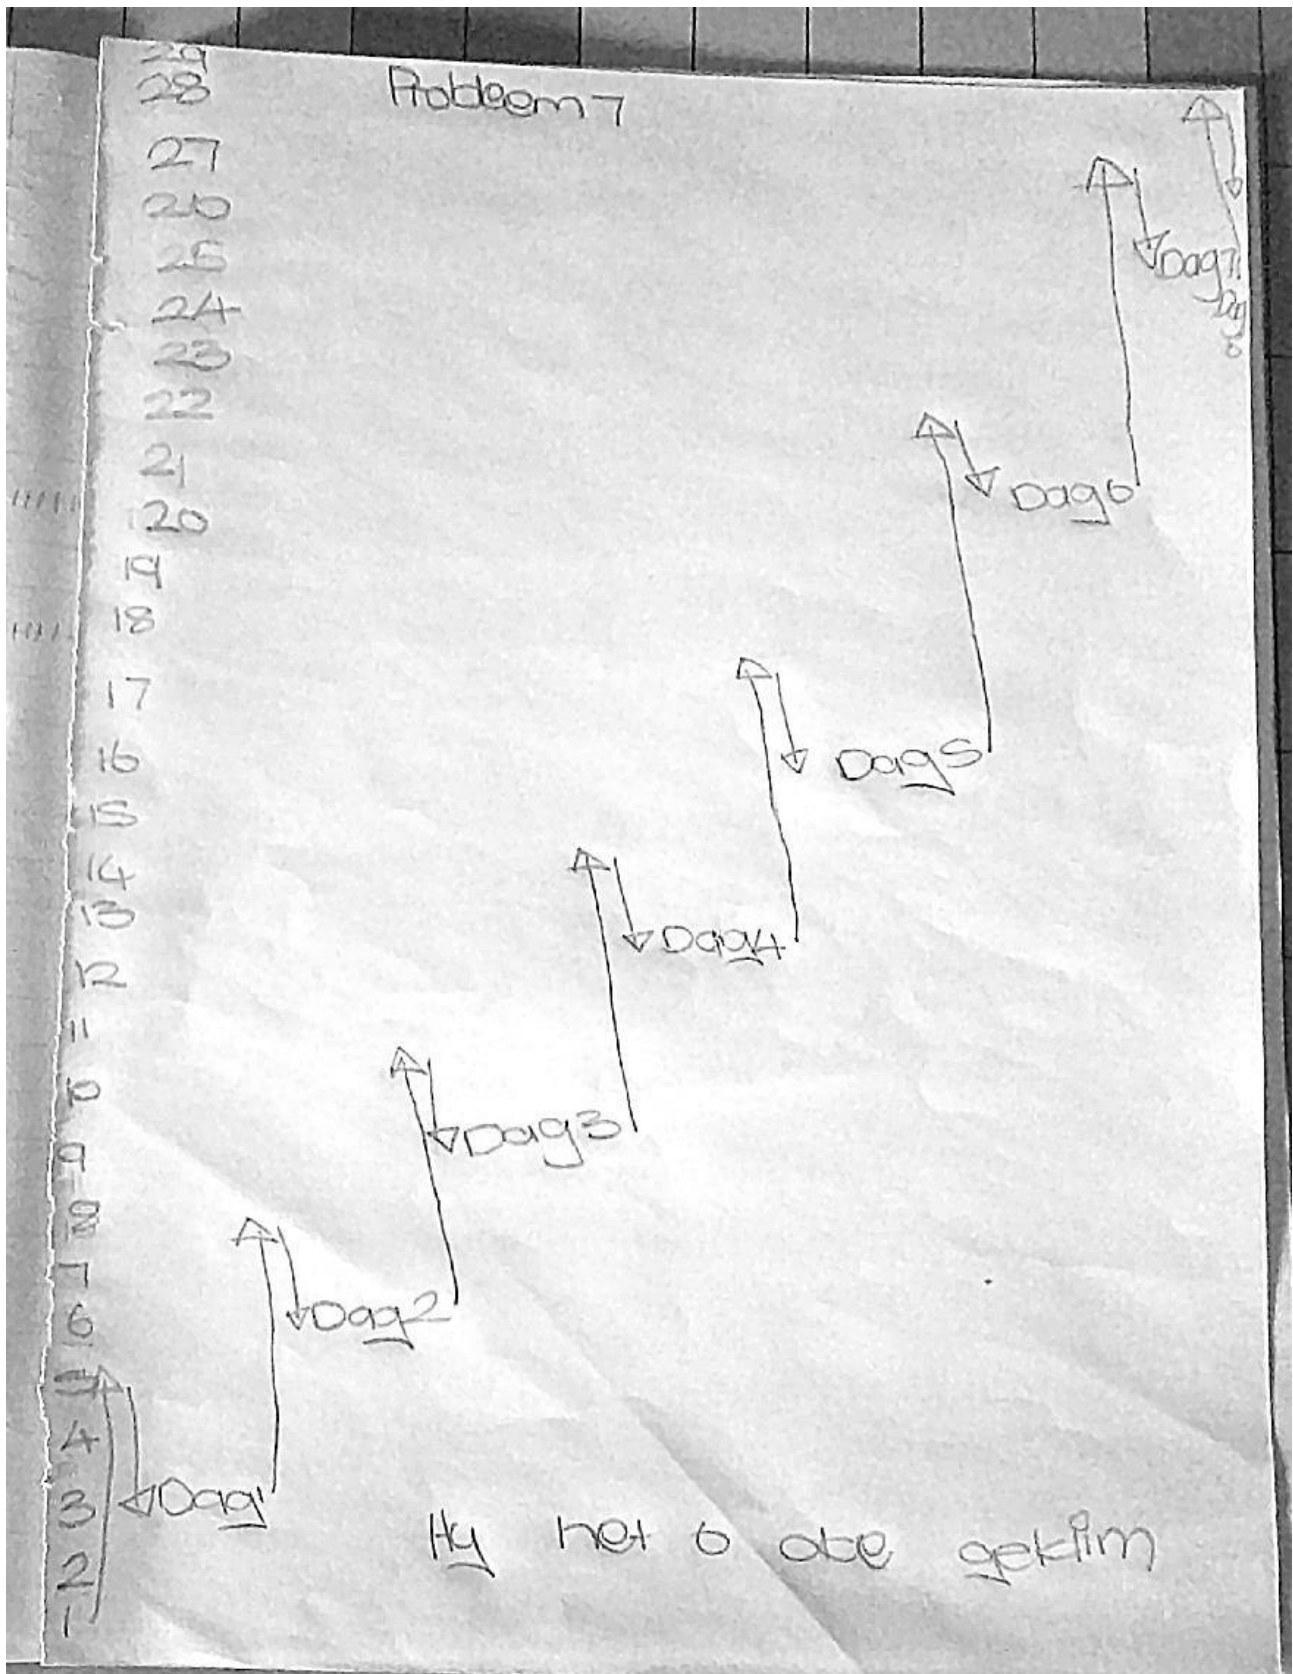 29
28
Probleem 7
27
26
25
24
23
22
21
20
19
18
17
16
15
14
13
12
11
10
9
8
7
6
5
4
3
2
1
Dag 7
Dag
8
Dag 6
Dag 5
Dag 4
Dag 3
Dag 2
Dag 1
Hy het 8 dae geklim